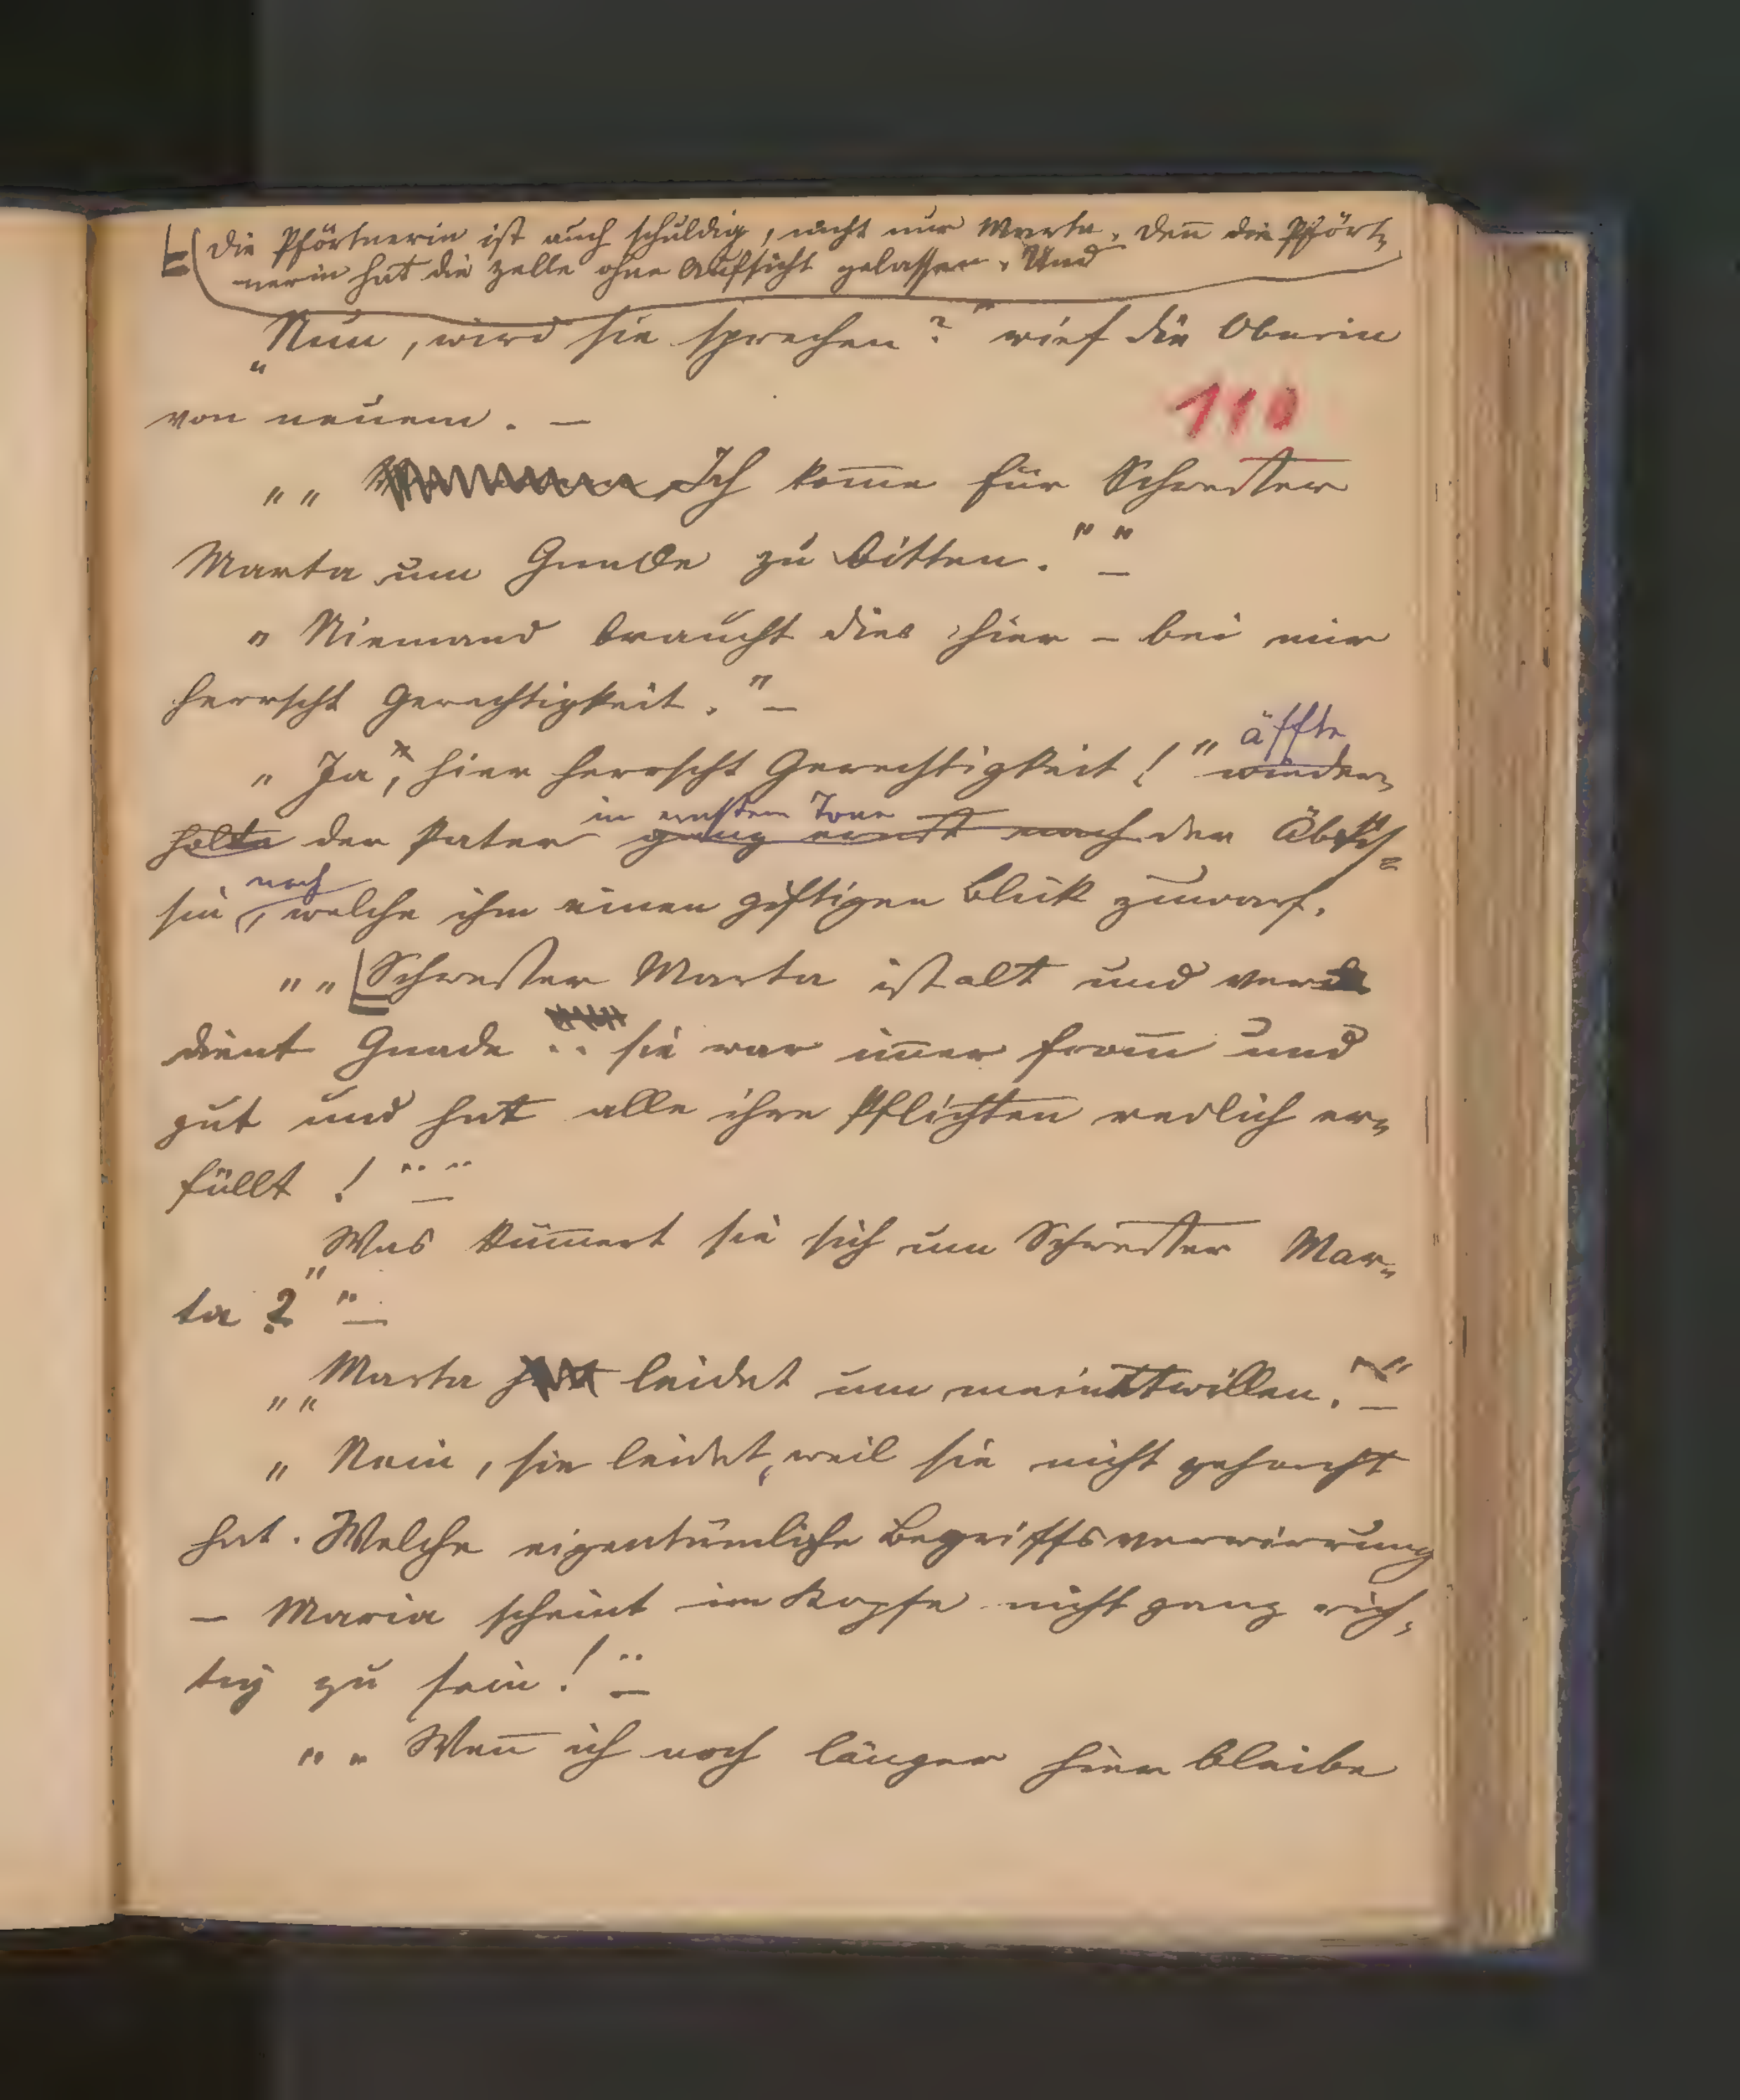 Die Pförtnerin ist auch schuldig, nicht nur Marta. Den̄ die Pfört-
nerin hat die Zelle ohne Aufsicht gelassen. Und
„Nun, wird sie sprechen?" rief die Oberin
von neuem. —
110
„„ Ich kom̄e für Schwester
Marta um Gnade zu bitten."" —
„Niemand braucht dies hier – bei mir
herrscht Gerechtigkeit." —
äffte
„Ja, hier herrscht Gerechtigkeit!" wieder-
in ernstem Tone
holte der Pater ganz ernst nach der Äbtis-
nach
sin, welche ihm einen giftigen Blick zuwarf.
„„Schwester Marta ist alt und ver-
dient Gnade .. sie war im̄er from̄ und
gut und hat alle ihre Pflichten redlich er-
füllt!"" —
„Was küm̄ert sie sich um Schwester Mar-
ta?" —
„„Marta leidet um meinetwillen."" —
„Nein, sie leidet, weil sie nicht gehorcht
hat. Welche eigentümliche Begriffsverwirrung
– Maria scheint im Kopfe nicht ganz rich-
tig zu sein!" —
„„Wen̄ ich noch länger hier bleibe